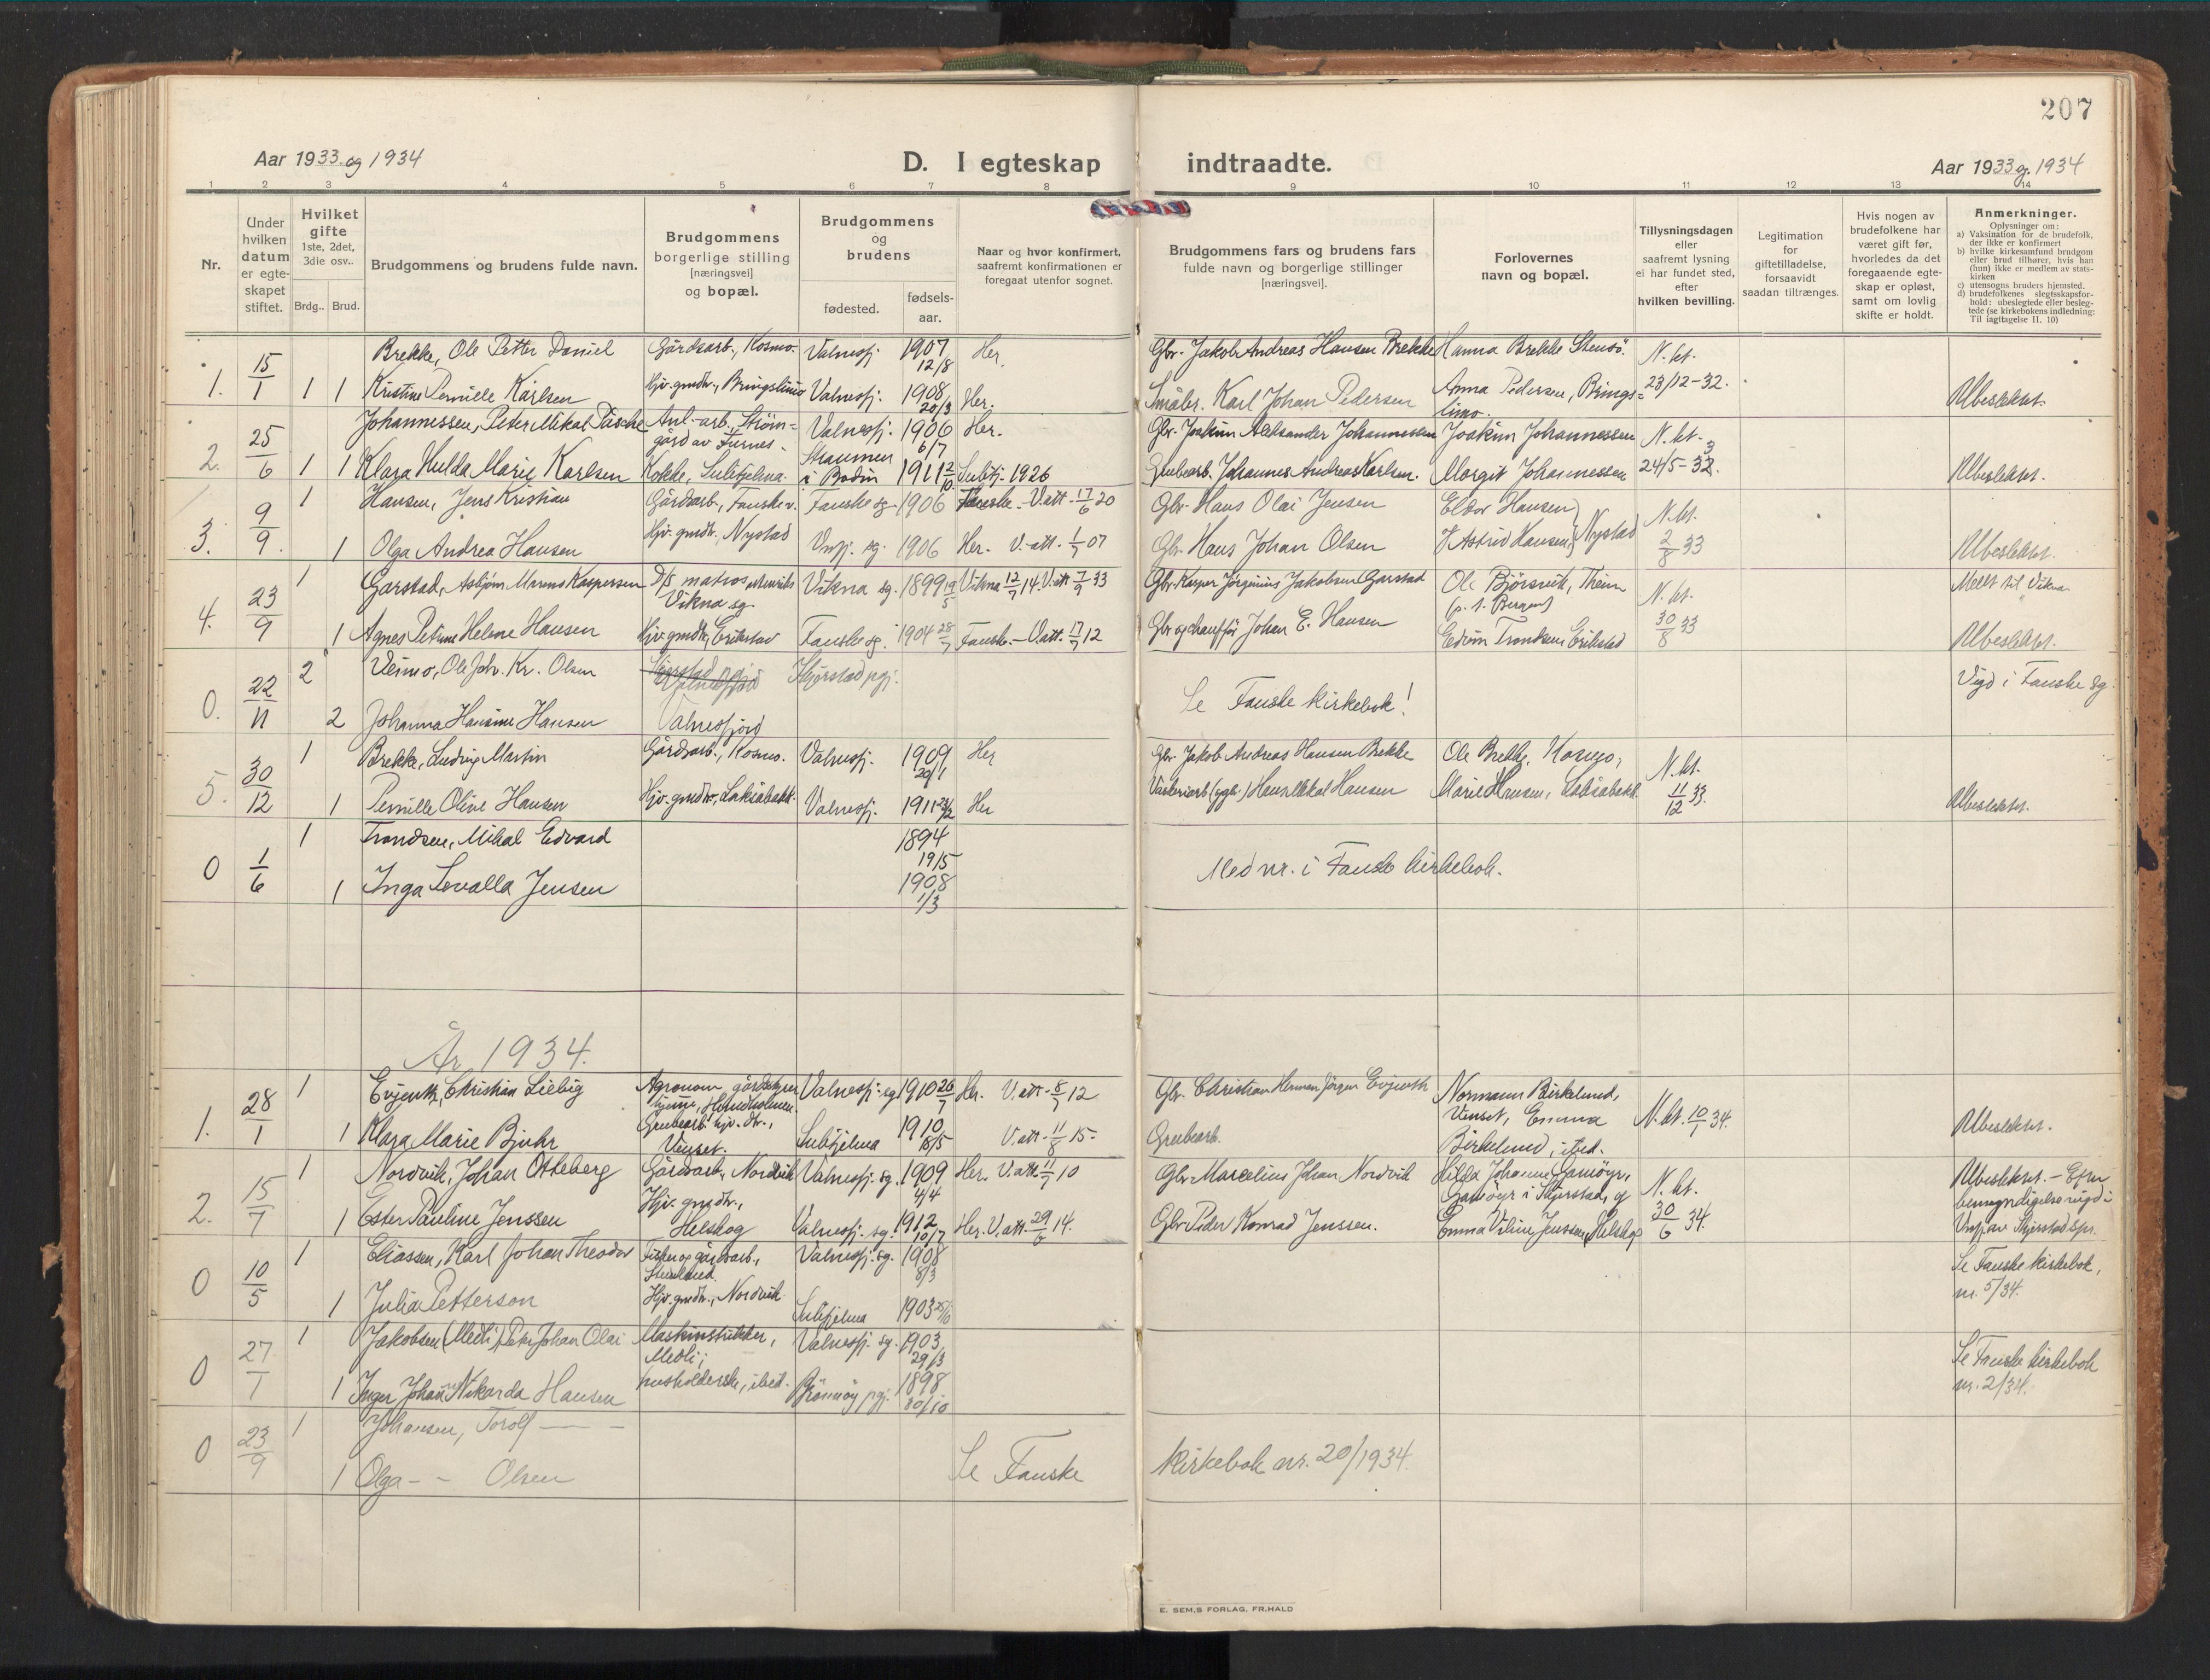 207
Aar 1933 og 1934
D. I egteskap indtraadte.
Aar 1933 og 1934
1 2 3 4 5 6 7 8 9 10 11 12 13 14
Nr.
Under hvilken datum er egte-skapet stiftet.
Hvilket gifte 1ste, 2det, 3die osv..
Brdg.. Brud.
Brudgommens og brudens fulde navn.
Brudgommens borgerlige stilling [næringsvei] og bopæl.
Brudgommens og brudens
fødested. fødsels-aar.
Naar og hvor konfirmert, saafremt konfirmationen er foregaat utenfor sognet.
Brudgommens fars og brudens fars fulde navn og borgerlige stillinger [næringsvei].
Forlovernes navn og bopæl.
Tillysningsdagen eller saafremt lysning ei har fundet sted, efter hvilken bevilling.
Legitimation for giftetilladelse, forsaavidt saadan tiltrænges.
Hvis nogen av brudefolkene har været gift før, hvorledes da det foregaaende egte-skap er opløst, samt om lovlig skifte er holdt.
Anmerkninger.
Oplysninger om:
a) Vaksination for de brudefolk, der ikke er konfirmert
b) hvilke kirkesamfund brudgom eller brud tilhører, hvis han (hun) ikke er medlem av stats-kirken
c) utensogns bruders hjemsted.
d) brudefolkenes slegtsskapsfor-hold: ubeslegtede eller besleg-tede (se kirkebokens indledning: Til iagttagelse II. 10)
1. 15/1 1 Brekke, Ole Petter Daniel Gårdsarb., Kosmo. Valnesfj. 1907 12/8 Her. Gbr. Jakob Andreas Hansen Brekke Hanna Brekke N. kt.
1 Kristine Pernille Karlsen Hjv. gmdtr., Bringslimo Valnesfj. 1908 20/3 Her. Småbr. Karl Johan Pedersen Anna Pedersen, Brings=limo. 23/12-32. Ubeslektet.
2. 25/6 1 Johannessen, Peter Mikal Påsche Anl.-arb., Strøm=gård av Furnes. Valnesfj. 1906 6/7 Her. Gbr. Joakim Aleksander Johannessen Joakim Johannessen N. kt.
1 Klara Hulda Marie Karlsen Kokke, Sulitjelma. Straumen i Bodin 1911 2/10 Sulitj. 1926 Grubearb. Johannes Andreas Karlsen. Margit Johannessen 24/5-33. Ubeslektet.
3. 9/9 1 Hansen, Jens Kristian Gårdsarb., Fauske v. Fauske sg. 1906 Fauske. V.att. 17/6 20 Gbr. Hans Olai Jensen Eldor Hansen N. kt.
1 Olga Andrea Hansen Hjv. gmdtr., Nystad Vnfj. sg. 1906 Her. V.-att. 1/7 07 Gbr. Hans Johan Olsen Astrid Hansen, Nystad 2/8 33 Ubeslektet.
4. 23/9 1 Garstad, Asbjørn Marenus Kaspersen D/S matros Vikna sg. Vikna sg. 1899 19/5 Vikna 12/7 14. V.att. 7/9 33 Gbr. Kasper Jørginius Jakobsen Garstad Ole Bjørsvik, (p. t. Bergen) N. kt. Meldt til Vikna
1 Agnes Petrine Helene Hansen Hjv. gmdtr., Erikstad Fauske sg. 1904 28/7 Fauske. - V.att. 17/7 12 Gbr. og chauffør Johan E. Hansen Edvin Trondsen, Erikstad 30/8 33 Ubeslektet.
0. 22/11 2 Veimo, Ole Joh. Kr. Olsen Skjerstad pgj. Se Fauske kirkebok! Vigd i Fauske sg.
2 Johanna Hansine Hansen Valnesfjord
5. 30/12 1 Brekke, Ludvig Martin Gårdsarb., Kosmo. Valnesfj. 1909 20/1 Her Gbr. Jakob Andreas Hansen Brekke Ole Brekke, Kosmo, N. kt.
1 Pernille Oline Hansen Hjv. gmdtr., Laksåbakk. Valnesfj. 1911 Her Hans Mikal Hansen Marie Hansen, Laksåbakk. 11/12 33. Ubeslektet.
0 1/6 1 Trondsen, Mikal Edvard 1894 19/5 Med nr. i Fauske kirkebok.
1 Inga Lovalla Jensen 1908 1/3
År 1934.
1. 28/1 1 Evjenth, Christian Liebig Agronom, gårdstyrer hjemme, Valnesfj. sg 1910 26/7 Her. V.att. 8/7 12 Gbr. Christian Herman Jørgen Evjenth Normann Birkelund, Venset, Emma Birkelund, ibid. N. kt. 10/1 34.
1 Klara Marie Bjuhr Grubearb. hjv. dtr., Venset. Sulitjelma 1910 18/5 V.att. 11/8 15. Grubearb. Ubeslektet.
2. 15/7 1 Nordvik, Johan Otteberg Gårdsarb., Nordvik Valnesfj. sg. 1909 4/4 Her. V.att. 11/7 10 Gbr. Marcelius Johan Nordvik Hilda Johanne Gamøyr, Gamøyr i Skjerstad, og N. kt. Ubeslektet. - Efter bemyndigelse vigd i Vnfj. av Skjerstad spr.
1 Ester Pauline Jenssen Hjv. gmdtr., Helskog Valnesfj. sg. 1912 10/7 Her. V.att. 29/6 14. Gbr. Peder Konrad Jenssen. Emma Viline Jenssen, Helskog 30/6 34.
0 10/5 1 Eliassen, Karl Johan Theodor Fisker og gårdsarb., Valnesfj. sg. 1908 8/3 Se Fauske kirkebok, nr. 5/34.
1 Julia Petterson Hjv. gmdtr., Nordvik Sulitjelma 1903
0 27/1 1 Jakobsen (Medli), Peter Johan Olai Maskinstikker, Medli; Valnesfj. sg. 1903 29/3 Se Fauske kirkebok nr. 2/34.
1 Inger Johanne Nikarda Hansen husholderske, ibid. Brønnøy pgj. 1898 30/10
0 23/9 1 Johansen, Torolf
1 Olga - - Olsen Se Fauske kirkebok nr. 20/1934.
E. SEM,S FORLAG, FR.HALD